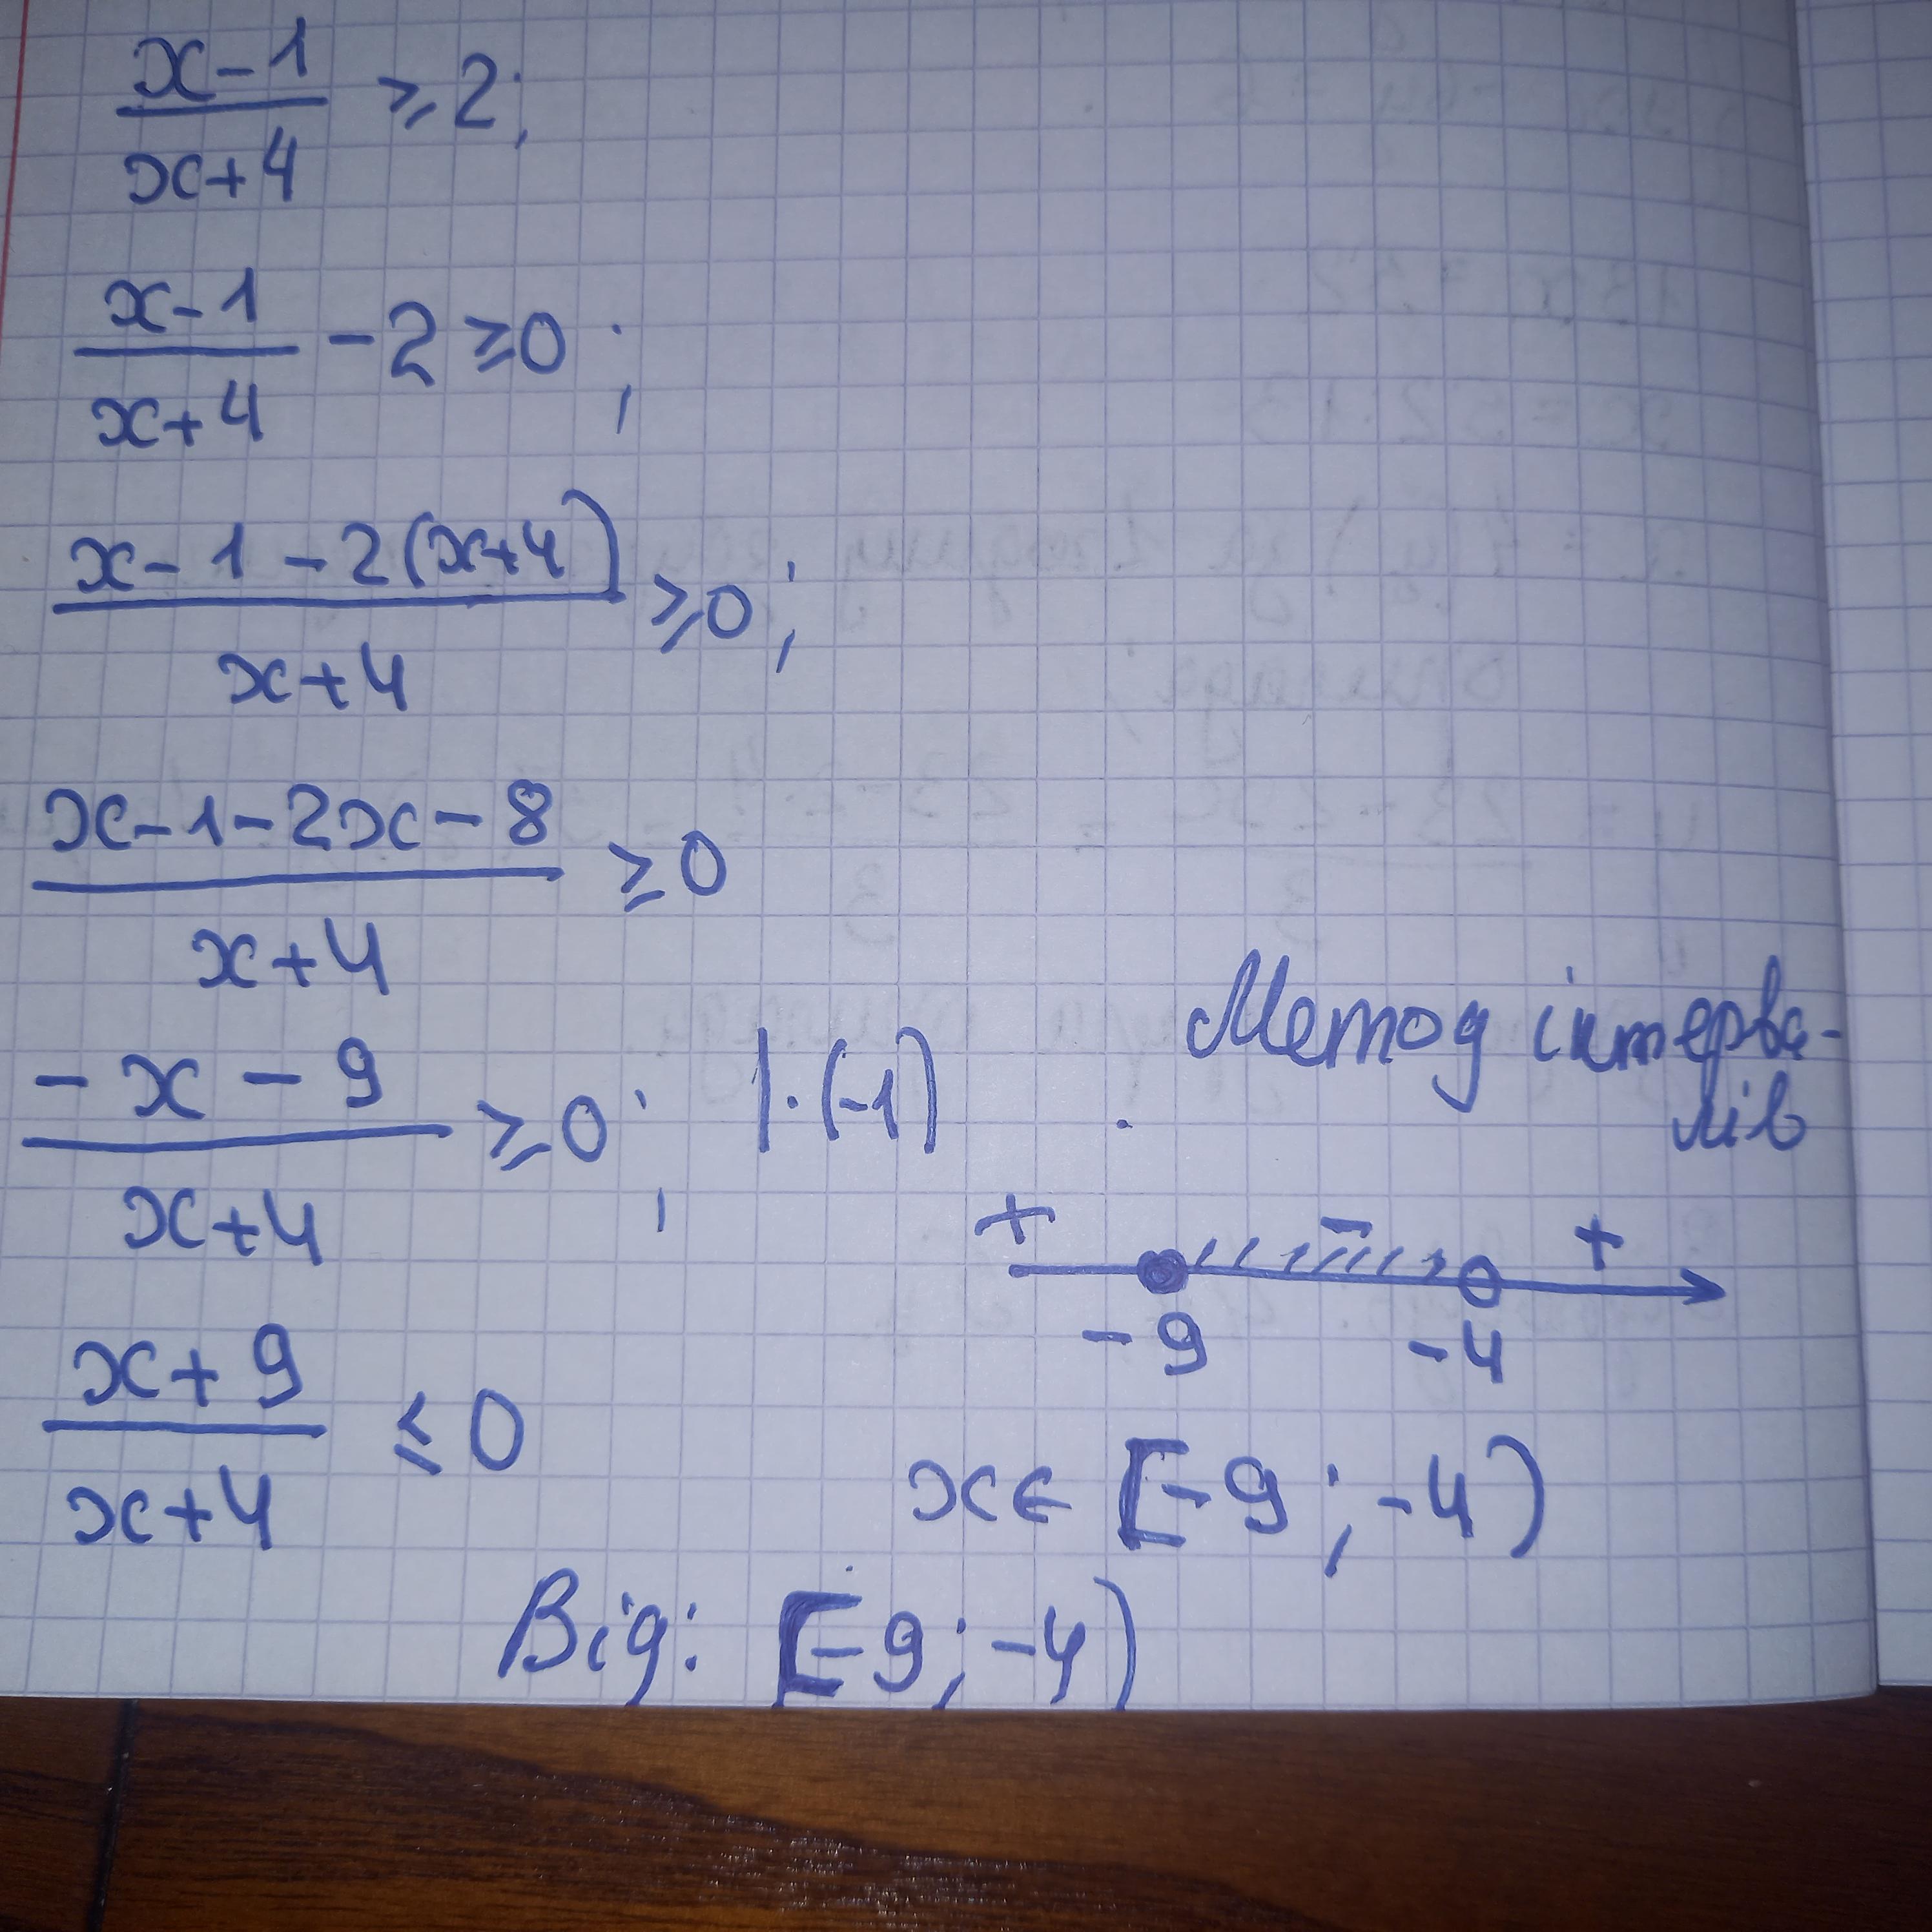 x-1
x+4 ≥ 2;
x-1
x+4 - 2 ≥ 0;
x-1-2(x+4)
x+4 ≥ 0;
x-1-2x-8
x+4 ≥ 0
-x-9
x+4 ≥ 0; |·(-1)
x+9
x+4 ≤ 0
Метод інтерва-
лів
+ - +
-9 -4
x∈ [-9; -4)
Від: [-9; -4)